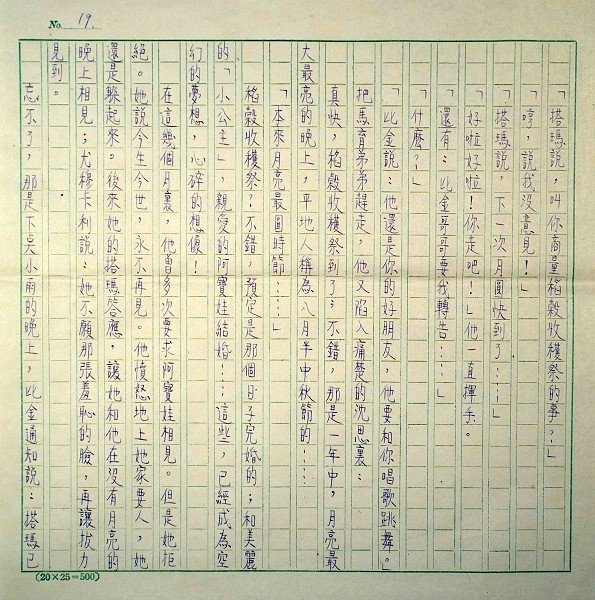 No. 19.
「塔瑪說，叫你商量稻穀收穫祭的事？」
「哼，說我沒意見！」
「塔瑪說，下一次月圓快到了……」
「好啦好啦！你走吧！」他一直揮手。
「還有：比金哥哥要我轉告……」
「什麼？」
「比金說：他還是你的好朋友，他要和你唱歌跳舞。」
把馬育弟弟趕走，他又陷入痛楚的沈思裏：
真快，稻穀收穫祭到了；不錯，那是一年中，月亮最
大最亮的晚上，平地人稱為八月半中秋節的……
「本來月亮最圓時節……」
稻穀收穫祭？不錯，預定是那個日子完婚的；和美麗
的「小公主」，親愛的阿寶娃結婚！……這些，已經成為空
幻的夢想，心碎的想像！
在這幾個月裏，他曾多次要求阿寶娃相見。但是她拒
絕。她說今生今世，永不再見。他憤怒地上她家要人，她
還是躲起來。後來她的塔瑪答應，讓她和他在沒有月亮的
晚上相見；尤穆卡利說：她不願那張羞恥的臉，再讓拔力
見到。
忘不了，那是下臭小雨的晚上，比金通知說：塔瑪已
(20×25=500)